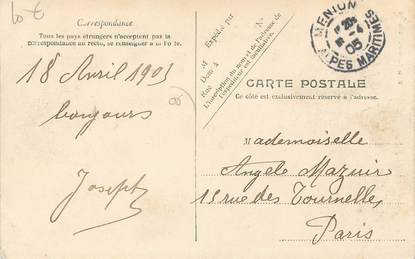 10 €
Correspondance
Tous les pays étrangers n'acceptent pas la
correspondance au recto, se renseigner à la Poste.
18 Avril 1905
bonjours
Joseph
M
Expédié par
Dom à
Rue
N°
L'inscription du nom et de l'adresse de
l'expéditeur est facultative.
MENTON
6 -4
05
ALPES MARITIMES
CARTE POSTALE
Ce côté est exclusivement réservé à l'adresse.
Mademoiselle
Angèle Mazuir
15 rue des Tournelles
Paris